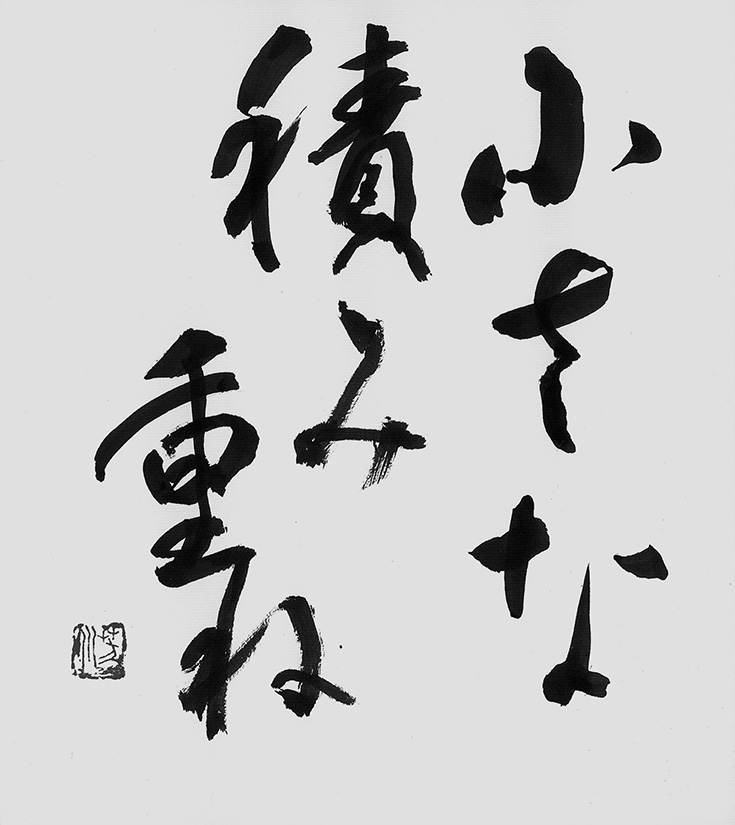 小さな
積み
重ね